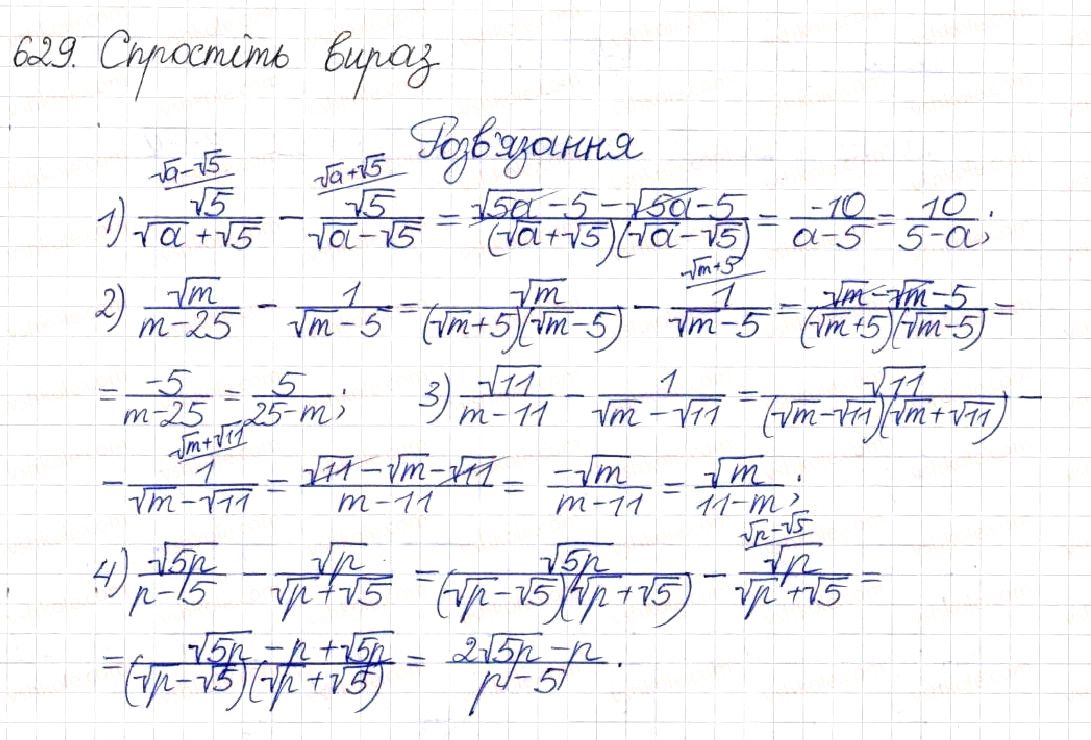 629. Спростіть вираз
Розв'язання
√a-√5 √a+√5
1) √5/(√a+√5) - √5/(√a-√5) = (√5a-5-√5a-5)/((√a+√5)(√a-√5)) = -10/(a-5) = 10/(5-a);
√m+5
2) √m/(m-25) - 1/(√m-5) = √m/((√m+5)(√m-5)) - 1/(√m-5) = (√m-√m-5)/((√m+5)(√m-5)) =
= -5/(m-25) = 5/(25-m); 3) √11/(m-11) - 1/(√m-√11) = √11/((√m-√11)(√m+√11)) -
√m+√11
- 1/(√m-√11) = (√11-√m-√11)/(m-11) = -√m/(m-11) = √m/(11-m);
√p-√5
4) √5p/(p-5) - √p/(√p+√5) = √5p/((√p-√5)(√p+√5)) - √p/(√p+√5) =
= (√5p-p+√5p)/((√p-√5)(√p+√5)) = (2√5p-p)/(p-5).